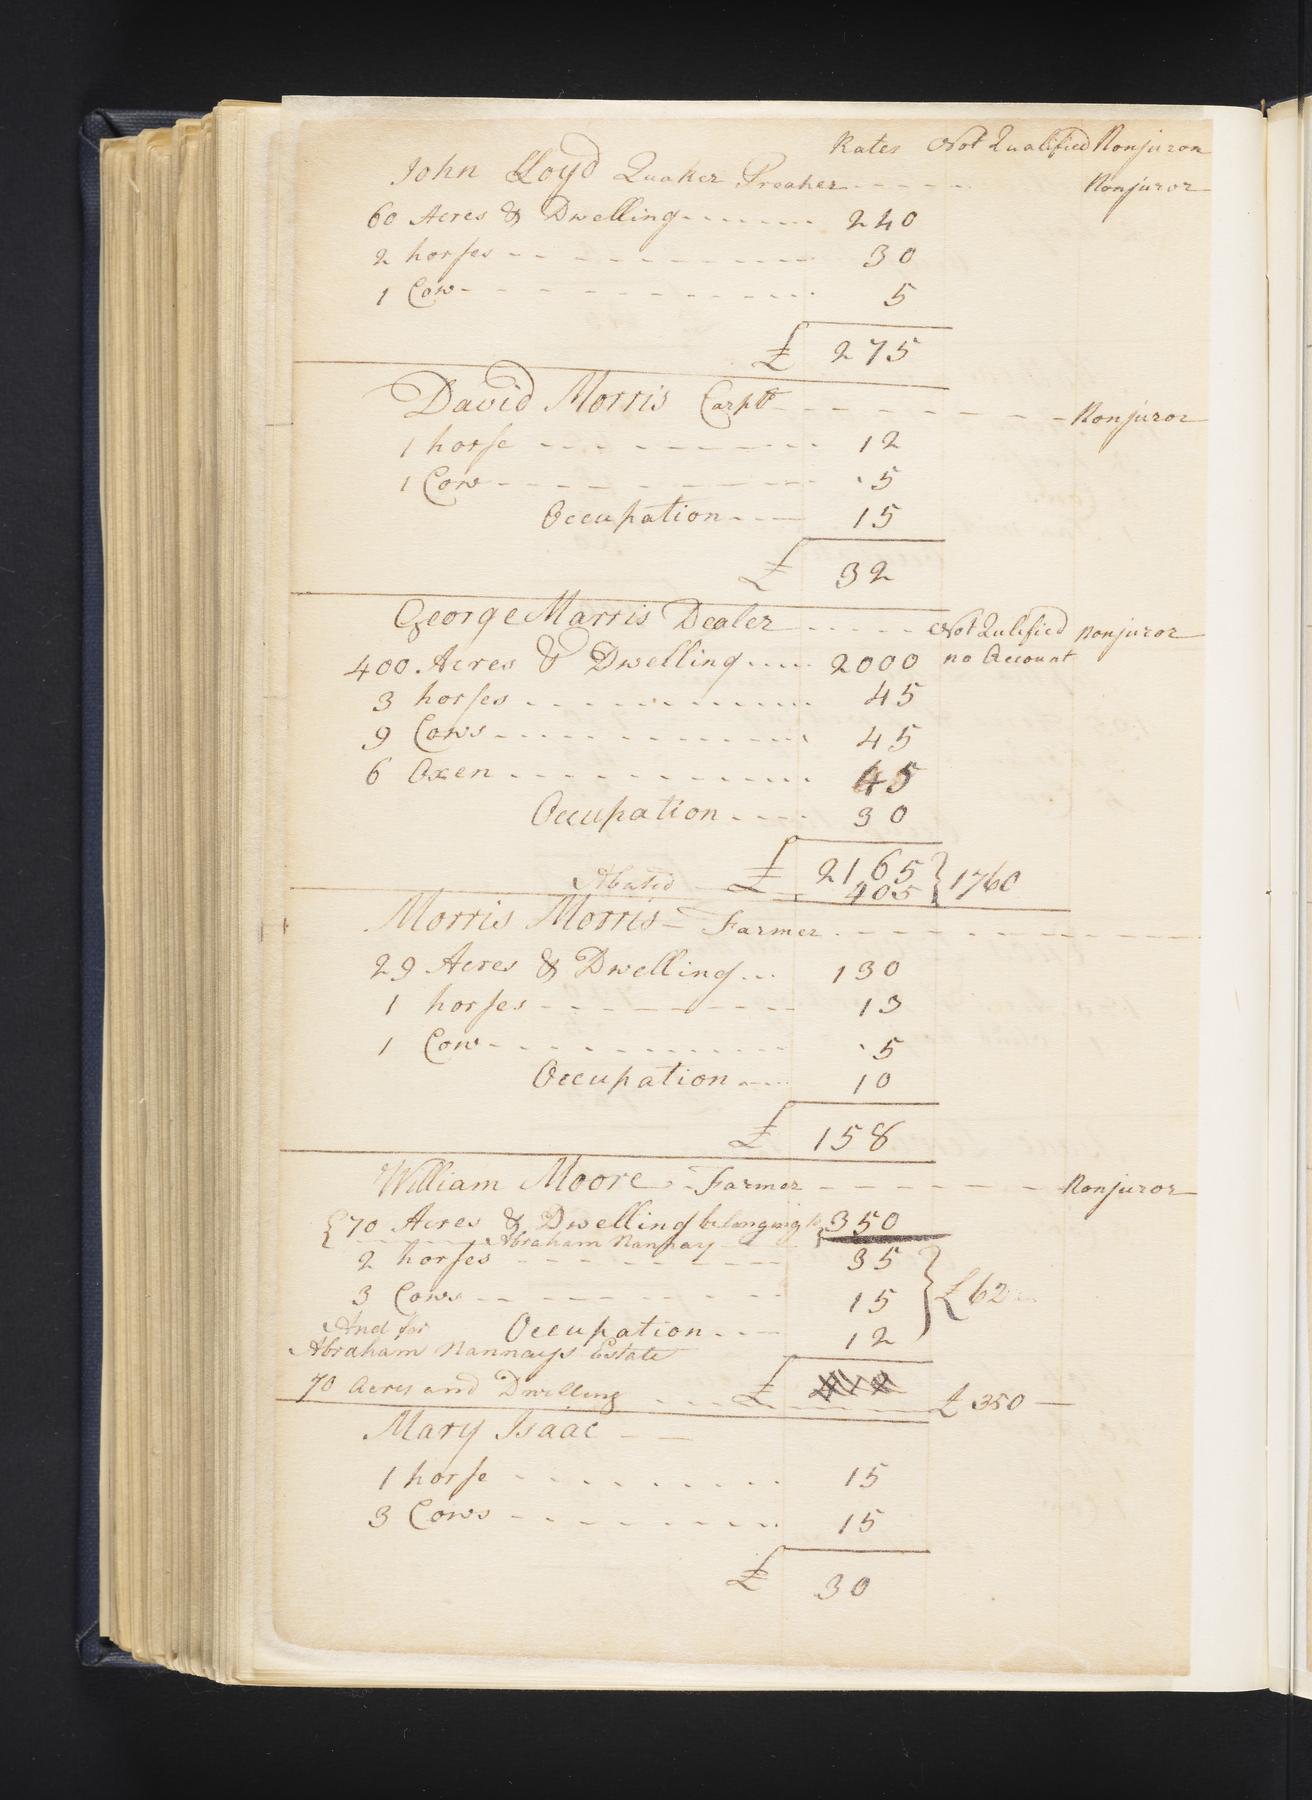 Rates Not Qualified Nonjuror
John Lloyd Quaker Preaher Nonjuror
60 Acres & Dwelling 240
2 horses 30
1 Cow 5
£ 275
David Morris Carptr Nonjuror
1 horse 12
1 Cow 5
Occupation 15
£ 32
George Marris Dealer Not Qulified Nonjuror
400 Acres & Dwelling 2000 no Account
3 horses 45
9 Cows 45
6 Oxen 45
Occupation 30
£ 2165 } 1760
Abated 405
Morris Morris Farmer
29 Acres & Dwelling 130
1 horses 13
1 Cow 5
Occupation 10
£ 158
William Moore Farmer Nonjuror
{ 70 Acres & Dwelling belonging to } 350
Abraham Nannay
2 horses 35
3 Cows 15 } £ 62
And for Occupation 12
Abraham Nannays Estate
70 Acres and Dwelling £ £ 350
Mary Isaac
1 horse 15
3 Cows 15
£ 30